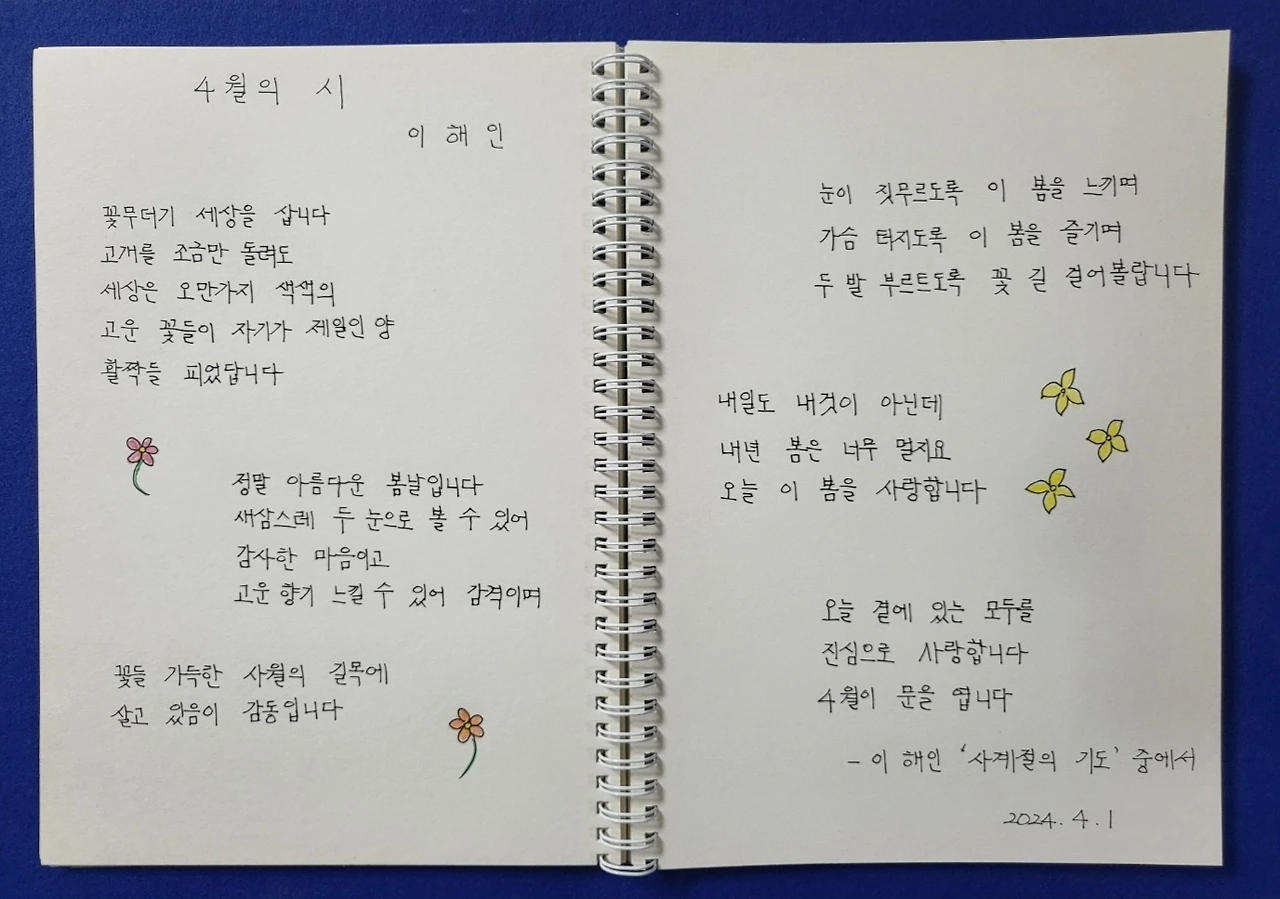 4월의 시
이 해 인
꽃무더기 세상을 삽니다
고개를 조금만 돌려도
세상은 오만가지 색색의
고운 꽃들이 자기가 제일인 양
활짝들 피었답니다
정말 아름다운 봄날입니다
새삼스레 두 눈으로 볼 수 있어
감사한 마음이고
고운 향기 느낄 수 있어 감격이며
꽃들 가득한 사월의 길목에
살고 있음이 감동입니다
눈이 짓무르도록 이 봄을 느끼며
가슴 터지도록 이 봄을 즐기며
두 발 부르트도록 꽃 길 걸어볼랍니다
내일도 내것이 아닌데
내년 봄은 너무 멀지요
오늘 이 봄을 사랑합니다
오늘 곁에 있는 모두를
진심으로 사랑합니다
4월이 문을 엽니다
- 이 해인 '사계절의 기도' 중에서
2024. 4. 1